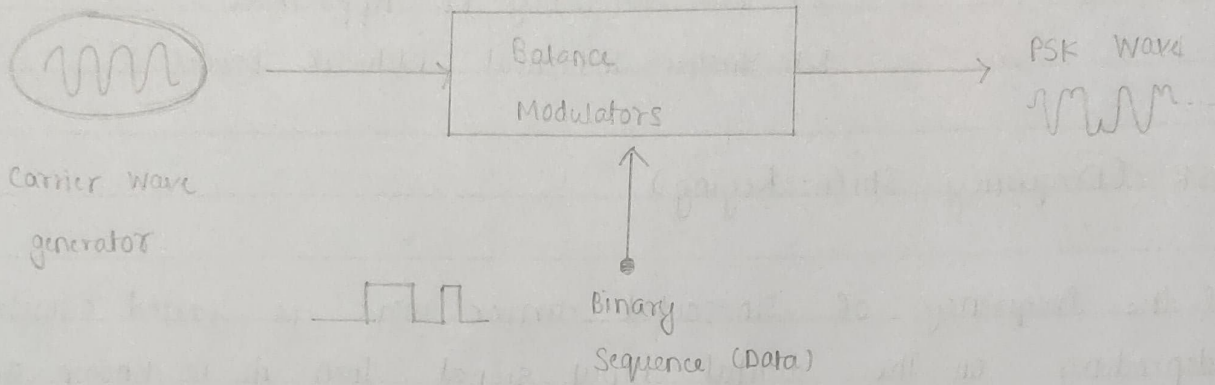 Balance
Modulators
PSK Wave
Carrier wave
generator
Binary
Sequence (Data)